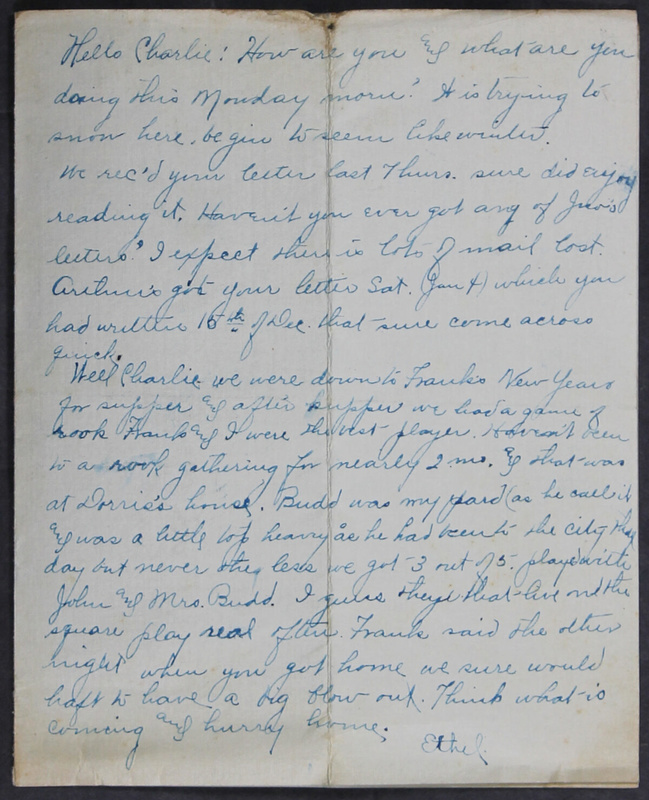 Hello Charlie! How are you and what are you
doing this Monday morn? It is trying to
snow here. begin to seem like winter.
We rec'd your letter last Thurs. sure did enjoy
reading it. Haven't you ever got any of
letters? I expect there is lots of mail lost.
got your letter Sat. (Jan 4) which you
had written 15th of Dec. that sure come across
quick.
Well Charlie we were down to Frank's New Years
for supper and after supper we had a game of
rook Frank and I were the best player. Haven't been
to a rook gathering for nearly 2 mo. and that was
at Dorris's house. Budd was my pard (as he call it
and was a little top heavy as he had been to the city that
day but never the less we got 3 out of 5. played with
John and Mrs. Budd. I guess they that live on the
square play real often. Frank said the other
night when you got home we sure would
haft to have a big blow out. Think what is
coming and hurry home.
Ethel.